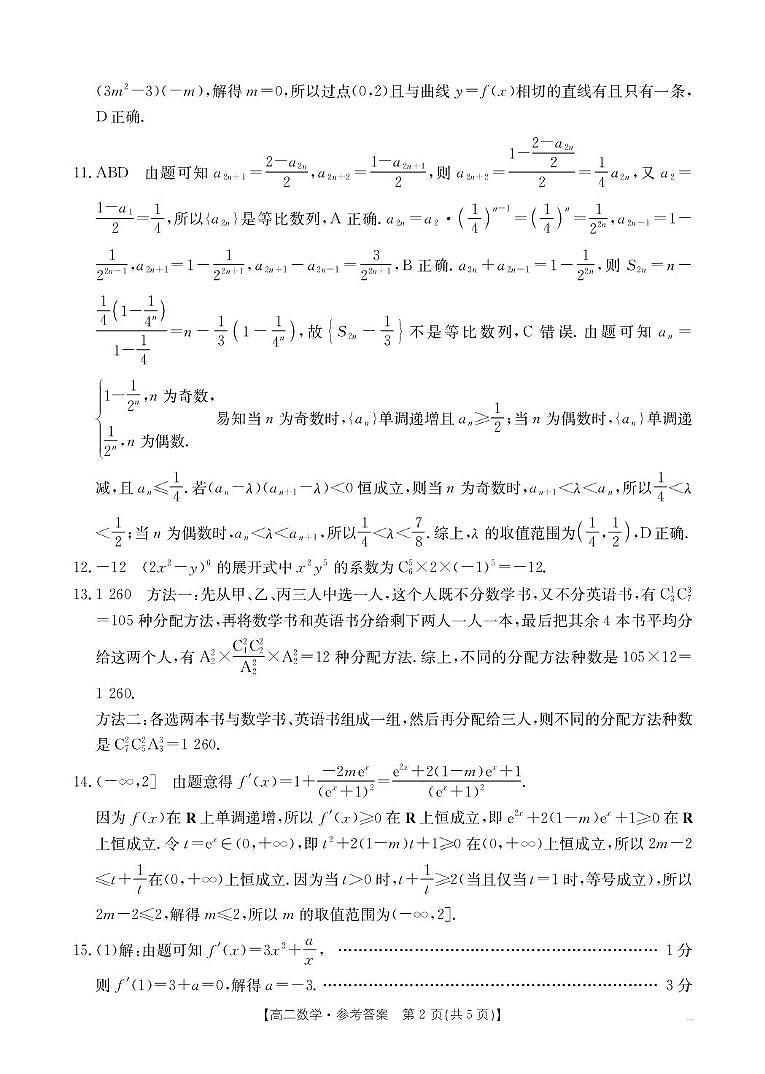 (3m²−3)(−m),解得 m=0,所以过点(0,2)且与曲线 y=f(x)相切的直线有且只有一条,
D 正确.
11. ABD 由题可知 a₂ₙ₊₁=(2−a₂ₙ)/2,a₂ₙ₊₂=(1−a₂ₙ₊₁)/2,则 a₂ₙ₊₂=(1−(2−a₂ₙ)/2)/2=(1/4)a₂ₙ,又 a₂=
(1−a₁)/2=1/4,所以{a₂ₙ}是等比数列,A 正确. a₂ₙ=a₂·(1/4)ⁿ⁻¹=(1/4)ⁿ=1/2²ⁿ,a₂ₙ₋₁=1−
1/2²ⁿ⁻¹,a₂ₙ₊₁=1−1/2²ⁿ⁺¹,a₂ₙ₊₁−a₂ₙ₋₁=3/2²ⁿ⁺¹,B 正确. a₂ₙ+a₂ₙ₋₁=1−1/2²ⁿ,则 S₂ₙ=n−
(1/4)(1−1/4ⁿ)/(1−1/4)=n−(1/3)(1−1/4ⁿ),故{S₂ₙ−1/3}不是等比数列,C 错误. 由题可知 aₙ=
{1−1/2ⁿ,n 为奇数,
1/2ⁿ,n 为偶数. 易知当 n 为奇数时,{aₙ}单调递增且 aₙ≥1/2;当 n 为偶数时,{aₙ}单调递
减,且 aₙ≤1/4. 若(aₙ−λ)(aₙ₊₁−λ)<0 恒成立,则当 n 为奇数时,aₙ₊₁<λ<aₙ,所以1/4<λ
<1/2;当 n 为偶数时,aₙ<λ<aₙ₊₁,所以1/4<λ<7/8. 综上,λ 的取值范围为(1/4,1/2),D 正确.
12. −12 (2x²−y)⁶ 的展开式中 x²y⁵ 的系数为 C₆⁵×2×(−1)⁵=−12.
13. 1 260 方法一:先从甲、乙、丙三人中选一人,这个人既不分数学书,又不分英语书,有 C₃¹C₇³
=105 种分配方法,再将数学书和英语书分给剩下两人一人一本,最后把其余 4 本书平均分
给这两个人,有 A₂²×(C₄²C₂²)/A₂²×A₂²=12 种分配方法. 综上,不同的分配方法种数是 105×12=
1 260.
方法二:各选两本书与数学书、英语书组成一组,然后再分配给三人,则不同的分配方法种数
是 C₇²C₅²A₃³=1 260.
14. (−∞,2] 由题意得 f′(x)=1+(−2meˣ)/(eˣ+1)²=(e²ˣ+2(1−m)eˣ+1)/(eˣ+1)².
因为 f(x)在 R 上单调递增,所以 f′(x)≥0 在 R 上恒成立,即 e²ˣ+2(1−m)eˣ+1≥0 在 R
上恒成立. 令 t=eˣ∈(0,+∞),即 t²+2(1−m)t+1≥0 在(0,+∞)上恒成立,所以 2m−2
≤t+1/t在(0,+∞)上恒成立. 因为当 t>0 时,t+1/t≥2(当且仅当 t=1 时,等号成立),所以
2m−2≤2,解得 m≤2,所以 m 的取值范围为(−∞,2].
15. (1)解:由题可知 f′(x)=3x²+a/x, …………………………………………… 1 分
则 f′(1)=3+a=0,解得 a=−3. …………………………………………… 3 分
【高二数学·参考答案 第 2 页(共 5 页)】